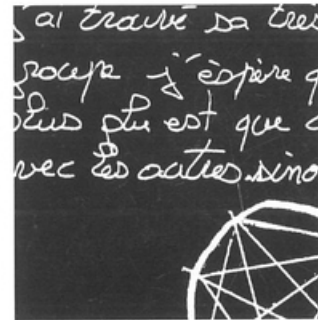 j'ai trouvé sa tres
groupe j'èspère q
plus plu est que
avec les autres sino